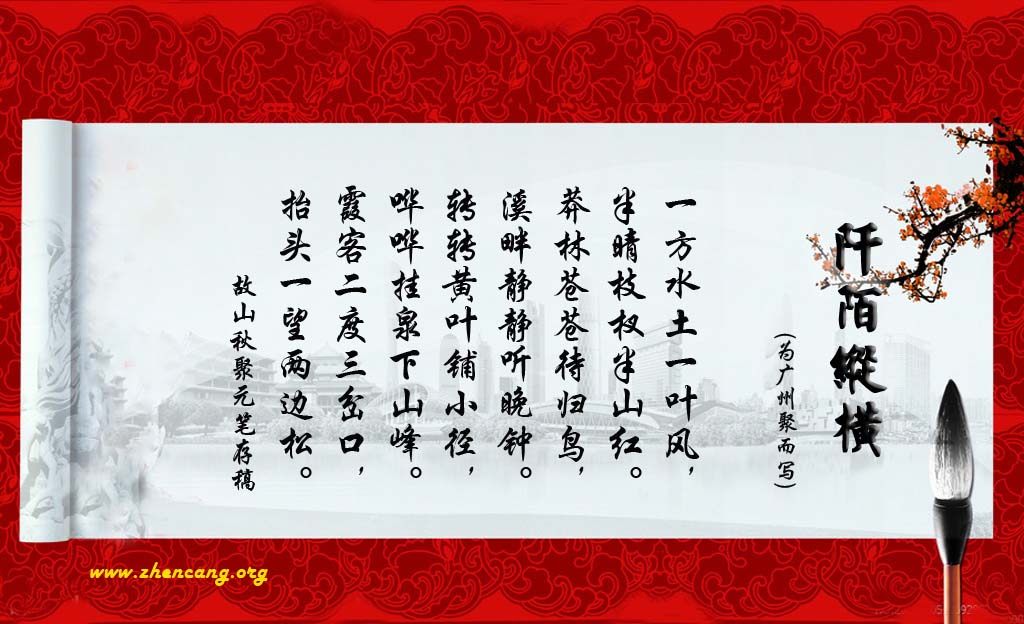 阡陌縱横
(为广州聚而写)
一方水土一叶风,
半晴枝杈半山红。
莽林苍苍待归鸟,
溪畔静静听晚钟。
转转黄叶铺小径,
哗哗挂泉下山峰。
霞客二度三岔口,
抬头一望两边松。
故山秋聚元笔存稿
www.zhencang.org